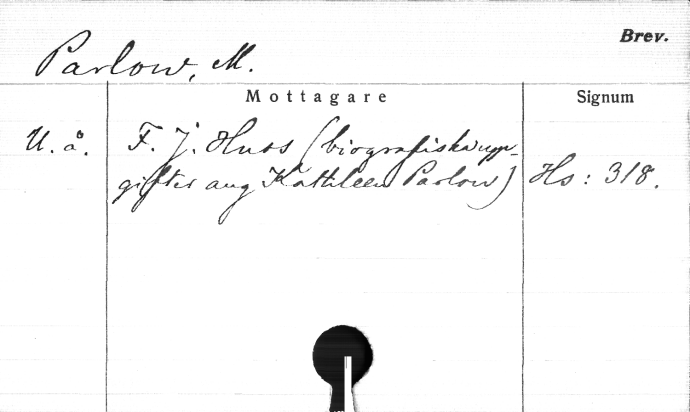 Brev.
Parlow, M.
Mottagare
Signum
U. å. F. J. Huss (biografiska upp-
gifter ang Kathleen Parlow) Hs: 318.